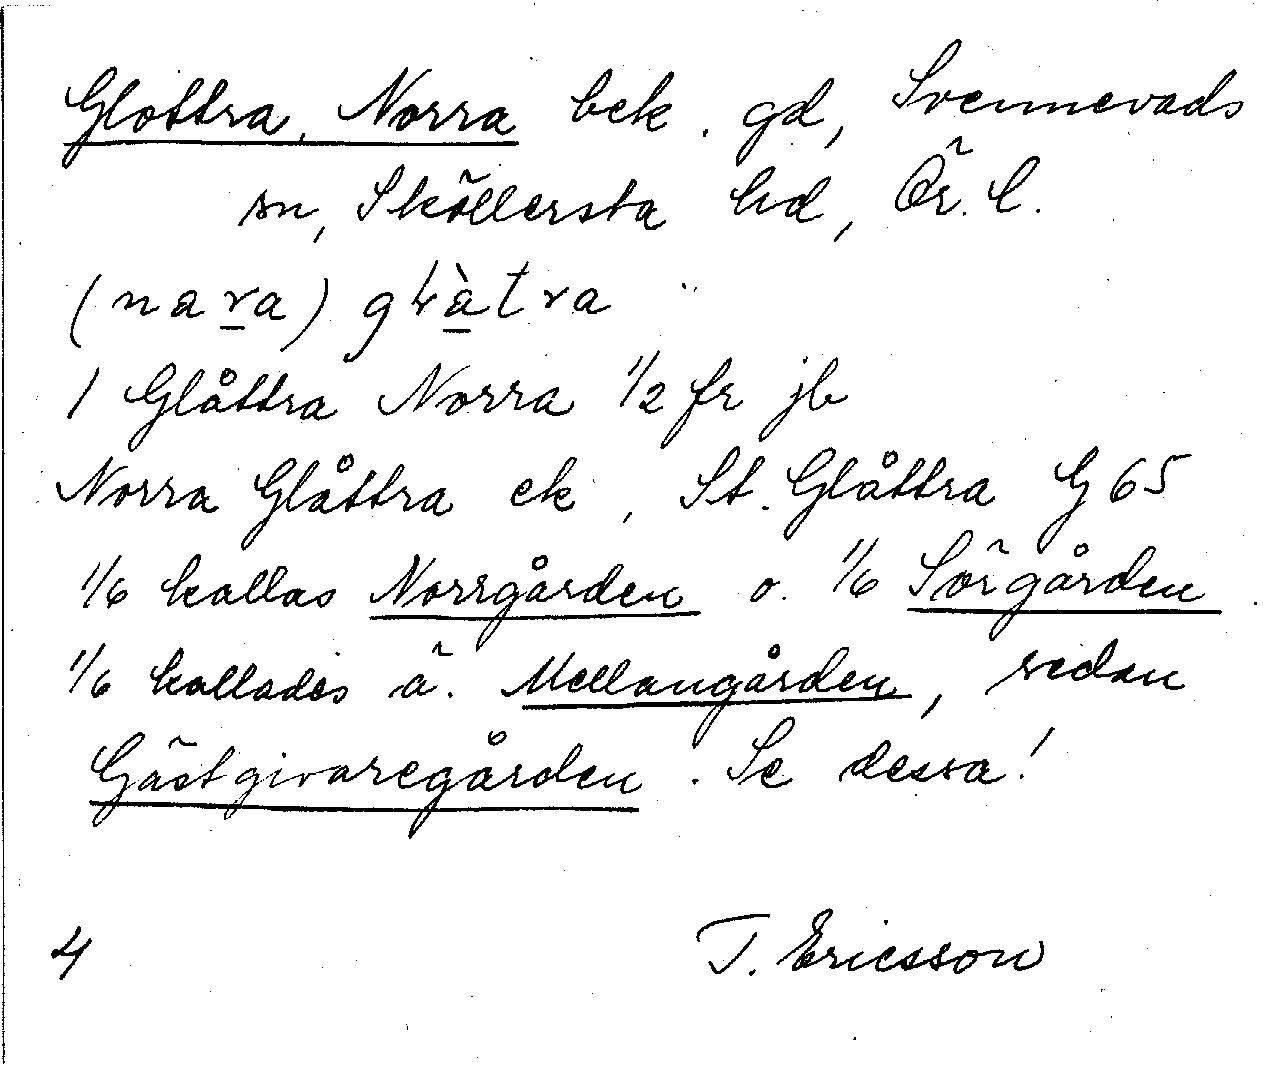 Glottra, Norra bek. gd, Svennevads
sn, Sköllersta hd, Ör. l.
(nara) glàtra
1 Glåttra Norra 1/2 fr jb
Norra Glåttra ek, St. Glåttra G 65
1/6 kallas Norrgården o. 1/6 Sörgården.
1/6 kallades ä. Mellangården, sedan
Gästgivaregården. Se dessa!
4 T. Ericsson